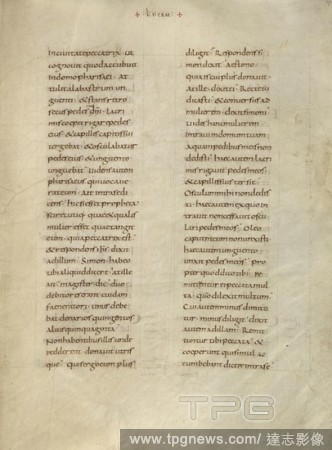 LUCAM
inciuitatepeccatrix ut
cognouit quodaccubuit
indomo pharisaei at
tulit alabastrum un
guenti &stansretro
secuspedeseius lacri
miscoepitrigarepedes
eius &capilliscapitissui
tergebat &osculabatur
pedeseius &unguento
unguebat uidensautem
pharisaeus quiuocaue
rateum Aitintrasedi
cens hicsiess&propheta
scir&utique quae&qualis
mulieress& quaetangit
eum quiapeccatrixest
&respondensihs dixit
adillum Simon habeo
tibialiquiddicere atille
ait magister dic duo
debitoreserant cuidam
faeneratori unusdebe
bat denarios quingentos
aliusquinquaginta
Nonhabentibusillis unde
redderent donauit utris
que quisergoeumplus
diligit Respondenssi
mondixit Aestimo
quiaiscuiplusdonauit
Atille dixitei Recteiu
dicasti &conuersusad
mulierem dixitsimoni
uideshancmulierem
Intrauiindomumtuam
Aquampedibusmeisnon
dedisti haecautemlacri
misrigauitpedesmeos
&capillissuistersit
Osculummihinondedis
ti haecautemexquoin
trauit noncessauitoscu
laripedesmeos Oleo
caputmeumnonunxisti
haecautemunguento
unxitpedesmeos pro
pterquoddicotibi Re
mittentureipeccatamul
ta quodilexitmultum
Cuiautemminusdimitti
tur minusdiligit dixit
autemadillam Remit
tunturtibipeccata &
coeperuntquisimulac
cumbebantdicereintrase
TPG
www.tpgnews.com/ 達志影像